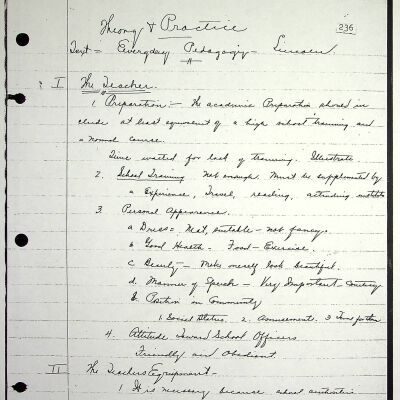 Theory & Practice
236
Text = Everyday Pedagogy - Lincoln
I The Teacher.
1. Preparation:- The academic Preparation should in
clude at least equivalent of a high school training and
a Normal Course.
Time wasted for lack of training. Illustrate
2. School Training Not enough. Must be supplemented by
a Experience, Travel, reading, attending institute
3. Personal Appearance.
a Dress = Neat, suitable - not fancy.
b. Good Health - Food - Exercise.
c Beauty - Make oneself look beautiful.
d. Manner of Speech - Very Important - Courtesy
Position in Community
1. Social Status. 2. Amusements. 3
4. Attitude toward School Officers
Friendly and Obedient.
II The Teachers Equipment -
1 It is necessary because school